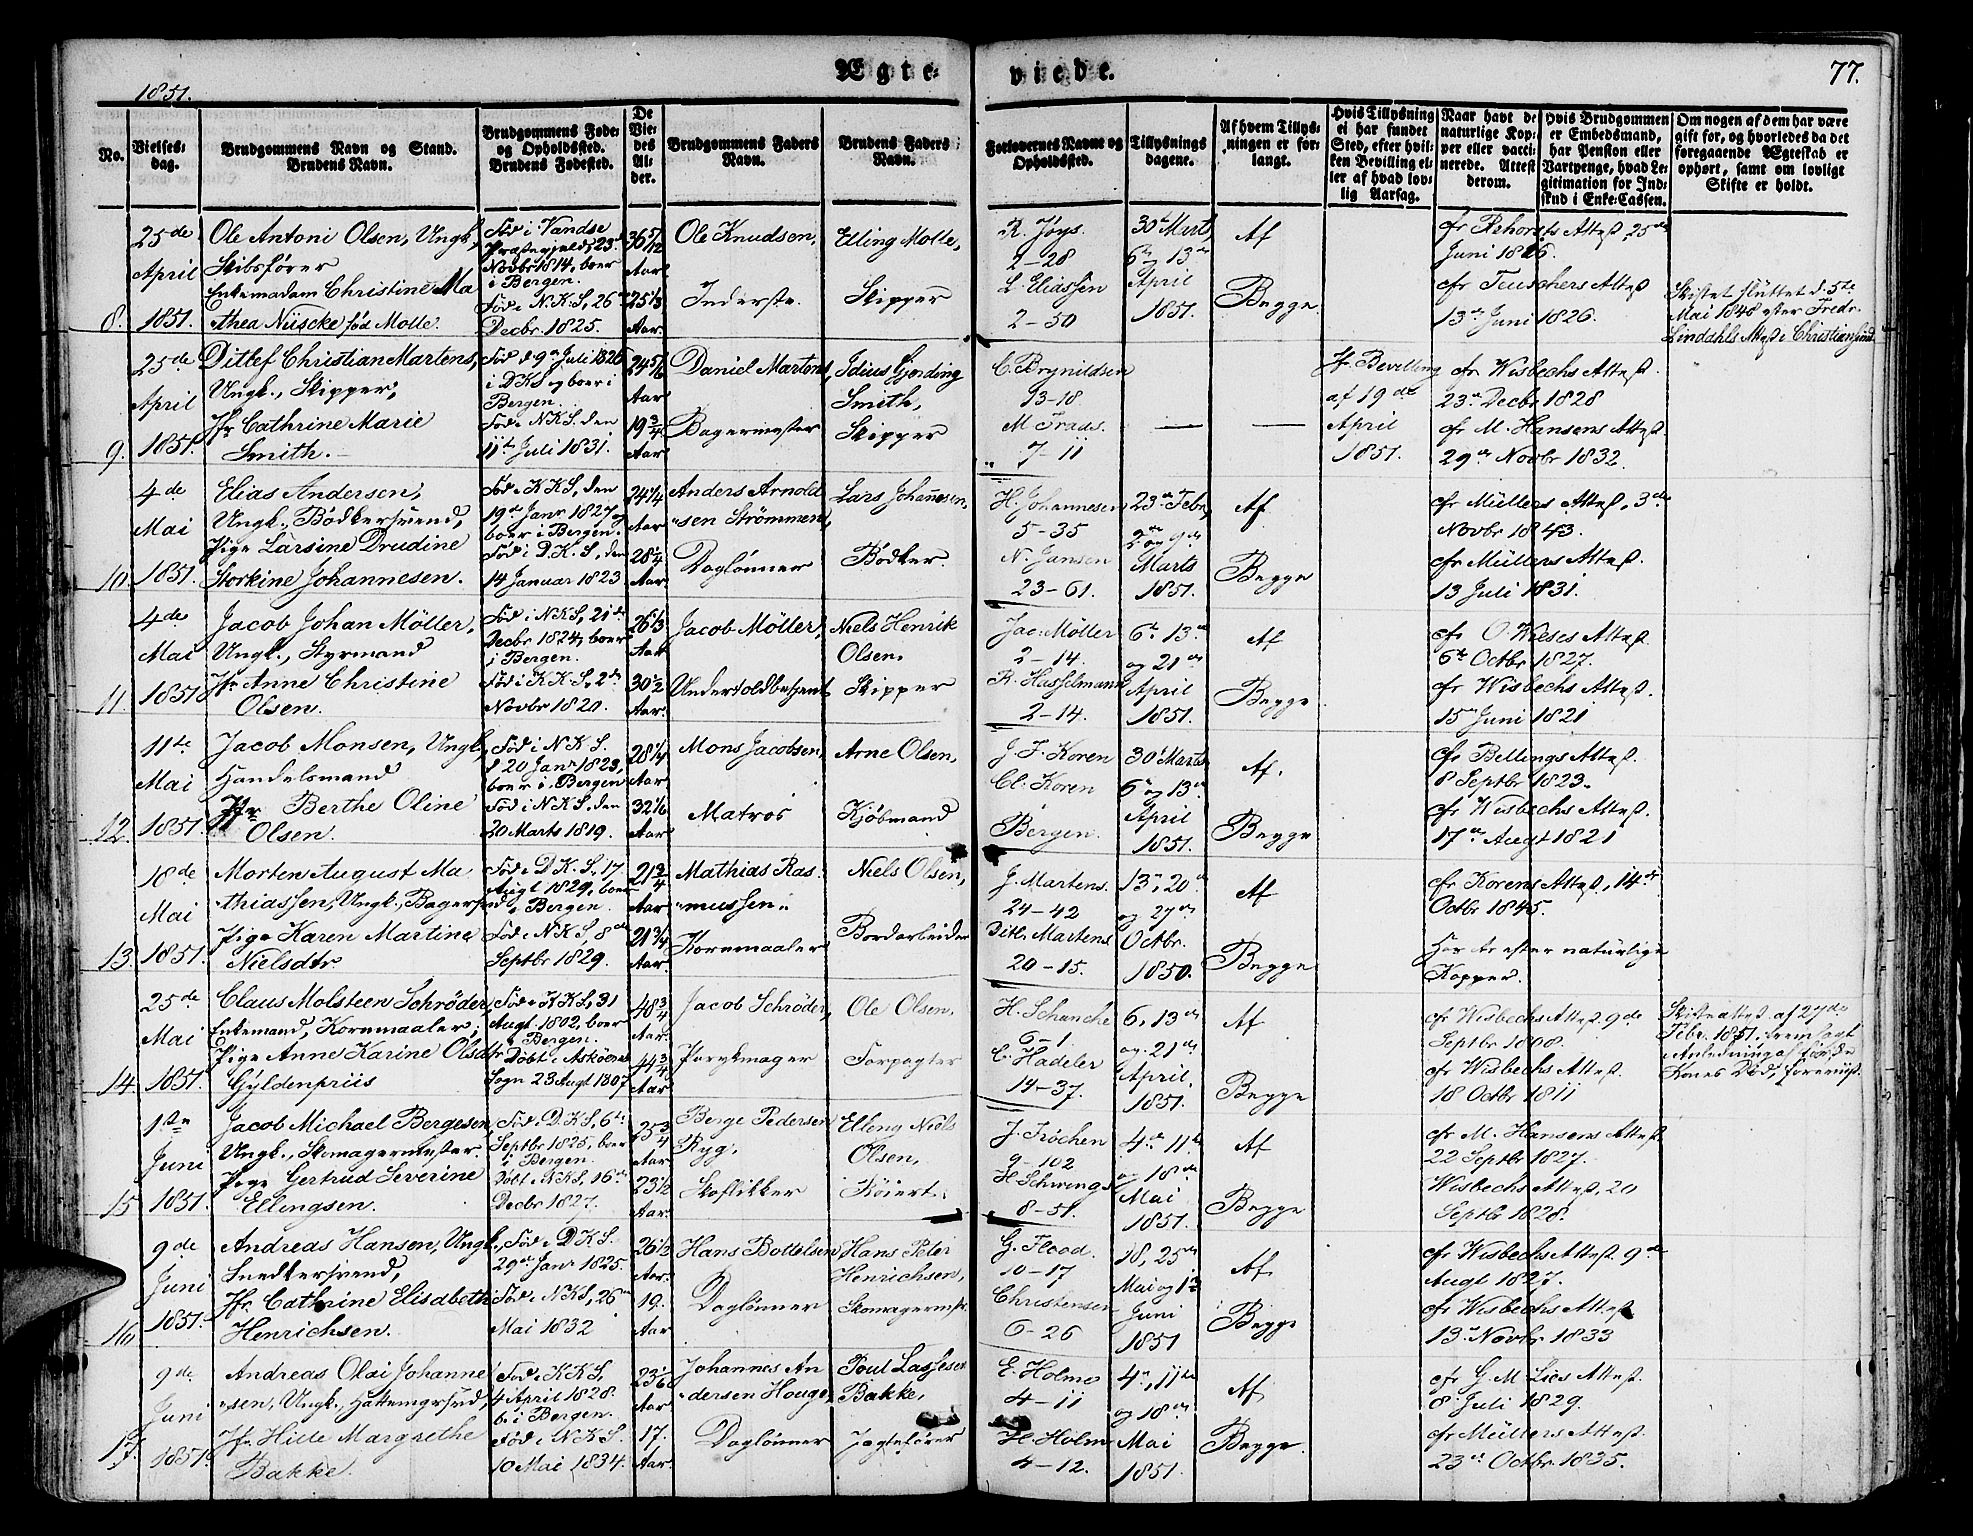 1851.
Ægte-
viede.
77.
No.
Vielses-
dag.
Brudgommens Navn og Stand.
Brudens Navn.
Brudgommens Føde-
og Opholdssted.
Brudens Fødested.
De
Vie-
des
Al-
der.
Brudgommens Faders
Navn.
Brudens Faders
Navn.
Forlovernes Navne og
Opholdssted.
Tillysnings
dagene.
Af hvem Tillys-
ningen er for-
langt.
Hvis Tillysning
ei har fundet
Sted, efter hvil-
ken Bevilling el-
ler af hvad lov-
lig Aarsag.
Naar havt de
naturlige Kop-
per eller vacci-
nerede. Attest
derom.
Hvis Brudgommen
er Embedsmand,
har Pension eller
Vartpenge, hvad Le-
gitimation for Ind-
skud i Enke-Cassen.
Om nogen af dem har være
gift før, og hvorledes da det
foregaaende Ægteskab er
ophørt, samt om lovligt
Skifte er holdt.
8.
25de
April
1851.
Ole Antoni Olsen, Ungk,
Skibsfører
Enkemadam Christine Ma
thea Nüscke fød Molle.
Fød i Vandse
Præstegjeld, 23de
Novbr 1814, boer
i Bergen.
Fød i N.K.S, 26de
Decbr. 1825.
36 5/12
Aar
25 1/3
Aar.
Ole Knudsen,
Inderste.
Elling Molle,
Skipper
R. Jøys.
2-28
L. Eliassen
2-50
30te Marts,
6te og 13de
April
1851.
Af
Begge
cfr Attest, 25de
Juni 1816.
cfr Teuschers Attest
13de Juni 1826.
Skiftet slüttet d. 5te
Mai 1848 efter Fredr.
Lindahls Attest i Christianssund
9.
25de
April
1851.
Ditlef Christian Martens,
Ungk., Skipper,
Jfr Cathrine Marie
Smith.
Fød d 9de Juli 1826
i DKS og boer i
Bergen.
Fød i N.K.S. den
11te Juli 1831.
24 5/6
Aar
19 3/4
Aar.
Daniel Martens,
Bagermester
Idius Gjerding
Smith,
Skipper
C. Brynildsen
13-18
M Traas.
7-11
—
—
If. Bevilling
af 19de
April
1851.
cfr Wisbechs Attest.
23de Decbr 1828
cfr M. Hansens Attest.
29de Novbr 1832.
10.
4de
Mai
1851.
Elias Andersen,
Ungk., Bødkersvend,
Pige Larsine Drudine
Storkine Johannesen.
Fød i K.K.S, den
19de Janr 1827 og
boer i Bergen.
Fød i D.K.S, den
14 Januar 1823
24 1/4
Aar
28 1/4
Aar.
Anders Arnold
sen Strömmen,
Daglønner
Lars Johannesen,
Bødker.
H. Johannesen
5-35
N. Jansen
23-61.
23de Febr,
2de og 9de
Marts
1851.
Af
Begge
cfr Müllers Attest, 3de
Novbr 1843.
cfr Müllers Attest.
13 Juli 1831.
11
4de
Mai
1851
Jacob Johan Möller,
Ungk., Styrmand
Jfr Anne Christine
Olsen.
Fød i N.K.S, 21de
Decbr 1824, boer
i Bergen.
Fød i K.K.S, 2de
Novbr 1820.
26 1/3
Aar
30 1/2
Aar.
Jacob Möller,
Undertoldbetjent
Niels Henrik
Olsen.
Skipper
Jac: Möller
2-14.
R. Hasselmann
2-14.
6te 13de
og 21de
April
1851.
Af
Begge
cfr O. Wieses Attest
6te Octbr 1827.
cfr Wisbechs Attest.
15de Juni 1821
12
11te
Mai
1851.
Jacob Monsen, Ungk,
Handelsmand
Jfr Berthe Oline
Olsen.
Fød i N.K.S.
d 20 Janr 1823,
boer i Bergen
Fød i N.K.S, den
20 Marts 1819.
28 1/4
Aar
32 1/6
Aar
Mons Jacobsen,
Matros
Arne Olsen,
Kjøbmand
J. F. Koren
Cl. Koren
Bergen.
30te Marts,
6te og 13de
April
1851.
Af.
Begge
cfr Bellings Attest.
8 Septbr 1823.
cfr Wisbechs Attest.
17de Augt 1821
13.
18de
Mai
1851.
Morten August Ma
thiassen, Ungk., Bagersvd
Pige Karen Martine
Nielsdtr.
Fød i D.K.S, 17
Augt 1829, boer
i Bergen.
Fød i N.K.S, 8de
Septbr 1829.
21 3/4
Aar
21 3/4
Aar.
Mathias Ras
mussen
Kornmaaler
Niels Olsen,
Bordarbeider
J. Martens.
24-42
Ditl. Martens
20-15.
13de, 20de
og 27de
Octbr.
1850.
Af
Begge
cfr Korens Attest, 14de
Octbr 1845.
Har Ar efter natürlige
Kopper.
14.
25de
Mai
1851.
Claus Molsteen Schröder,
Enkemand, Kornmaaler,
Pige Anne Karine Olsdtr
Gyldenpriis
Fød i K.K.S, 31
Augt. 1802, boer
i Bergen.
Døbt i Askøens
Sogn 23 Augt 1807
48 3/4
Aar.
44 3/4
Aar
Jacob Schröder,
Parykmager
Ole Olsen.
Forpagter
H. Schanche
6-1
C. Hadeler
14-37.
6, 13de
og 21de
April,
1851.
Af
Begge
cfr Wisbechs Attest 9de
Septbr 1808.
cfr Wisbechs Attest.
18 Octbr 1811
Skifteattest af 27de
Febr. 1851.
Anledning af
Kones Død, foreviist.
15
1ste
Juni
1851.
Jacob Michael Bergesen,
Ungk., Skomagermester.
Pige Gertrud Severine
Ellingsen.
Fød i D.K.S, 6te
Septbr 1825, boer
i Bergen.
Døbt i N.K.S, 16de
Decbr 1827.
25 3/4
Aar
23 1/2
Aar.
Berge Pedersen
Ryg,
Skoflikker
Elling Niels
Olsen,
J. Tröchen
9-102
H. Schwings
8-51.
4de 11te
og 18de
Mai
1851.
Af
Begge
cfr M. Hansens Attest
22 Septbr 1827.
Wisbechs Attest, 20
Septbr 1828.
16
9de
Juni
1851.
Andreas Hansen, Ungk.,
Snedkersvend,
Jfr. Cathrine Elisabeth
Henrichsen.
Fød i D.K.S.
29de Janr 1825.
Fød i N.K.S, 26de
Mai 1832
26 1/3
Aar.
19.
Aar
Hans Bottelsen
Daglønner
Hans Peter
Henrichsen,
Skomagermst.
G. Flood.
10-17
Christensen
6-26
18, 25de
Mai og 1ste
Juni
1851
Af
Begge
cfr Wisbechs Attest 9de
Augt 1827.
cfr Wisbechs Attest
13de Novbr 1833
17.
9de
Juni
1851.
Andreas Olai Johanne
sen, Ungk., Hattemgrsvd,
Jfr. Hille Margrethe
Bakke.
Fød i K.K.S,
4 April 1828.
b. i Bergen.
Fød i N.K.S.
10 Mai 1834.
23 1/6
Aar
17.
Aar.
Johannes An
dersen Houge,
Daglønner
Poul Lassesen
Bakke,
Jagtefører
E. Holme
4-11
H. Holm
4-12.
4de, 11te
og 18de
Mai
1851.
Af
Begge.
cfr G. M. Lies Attest.
8 Juli 1829.
cfr Müllers Attest.
23de Octbr 1835.